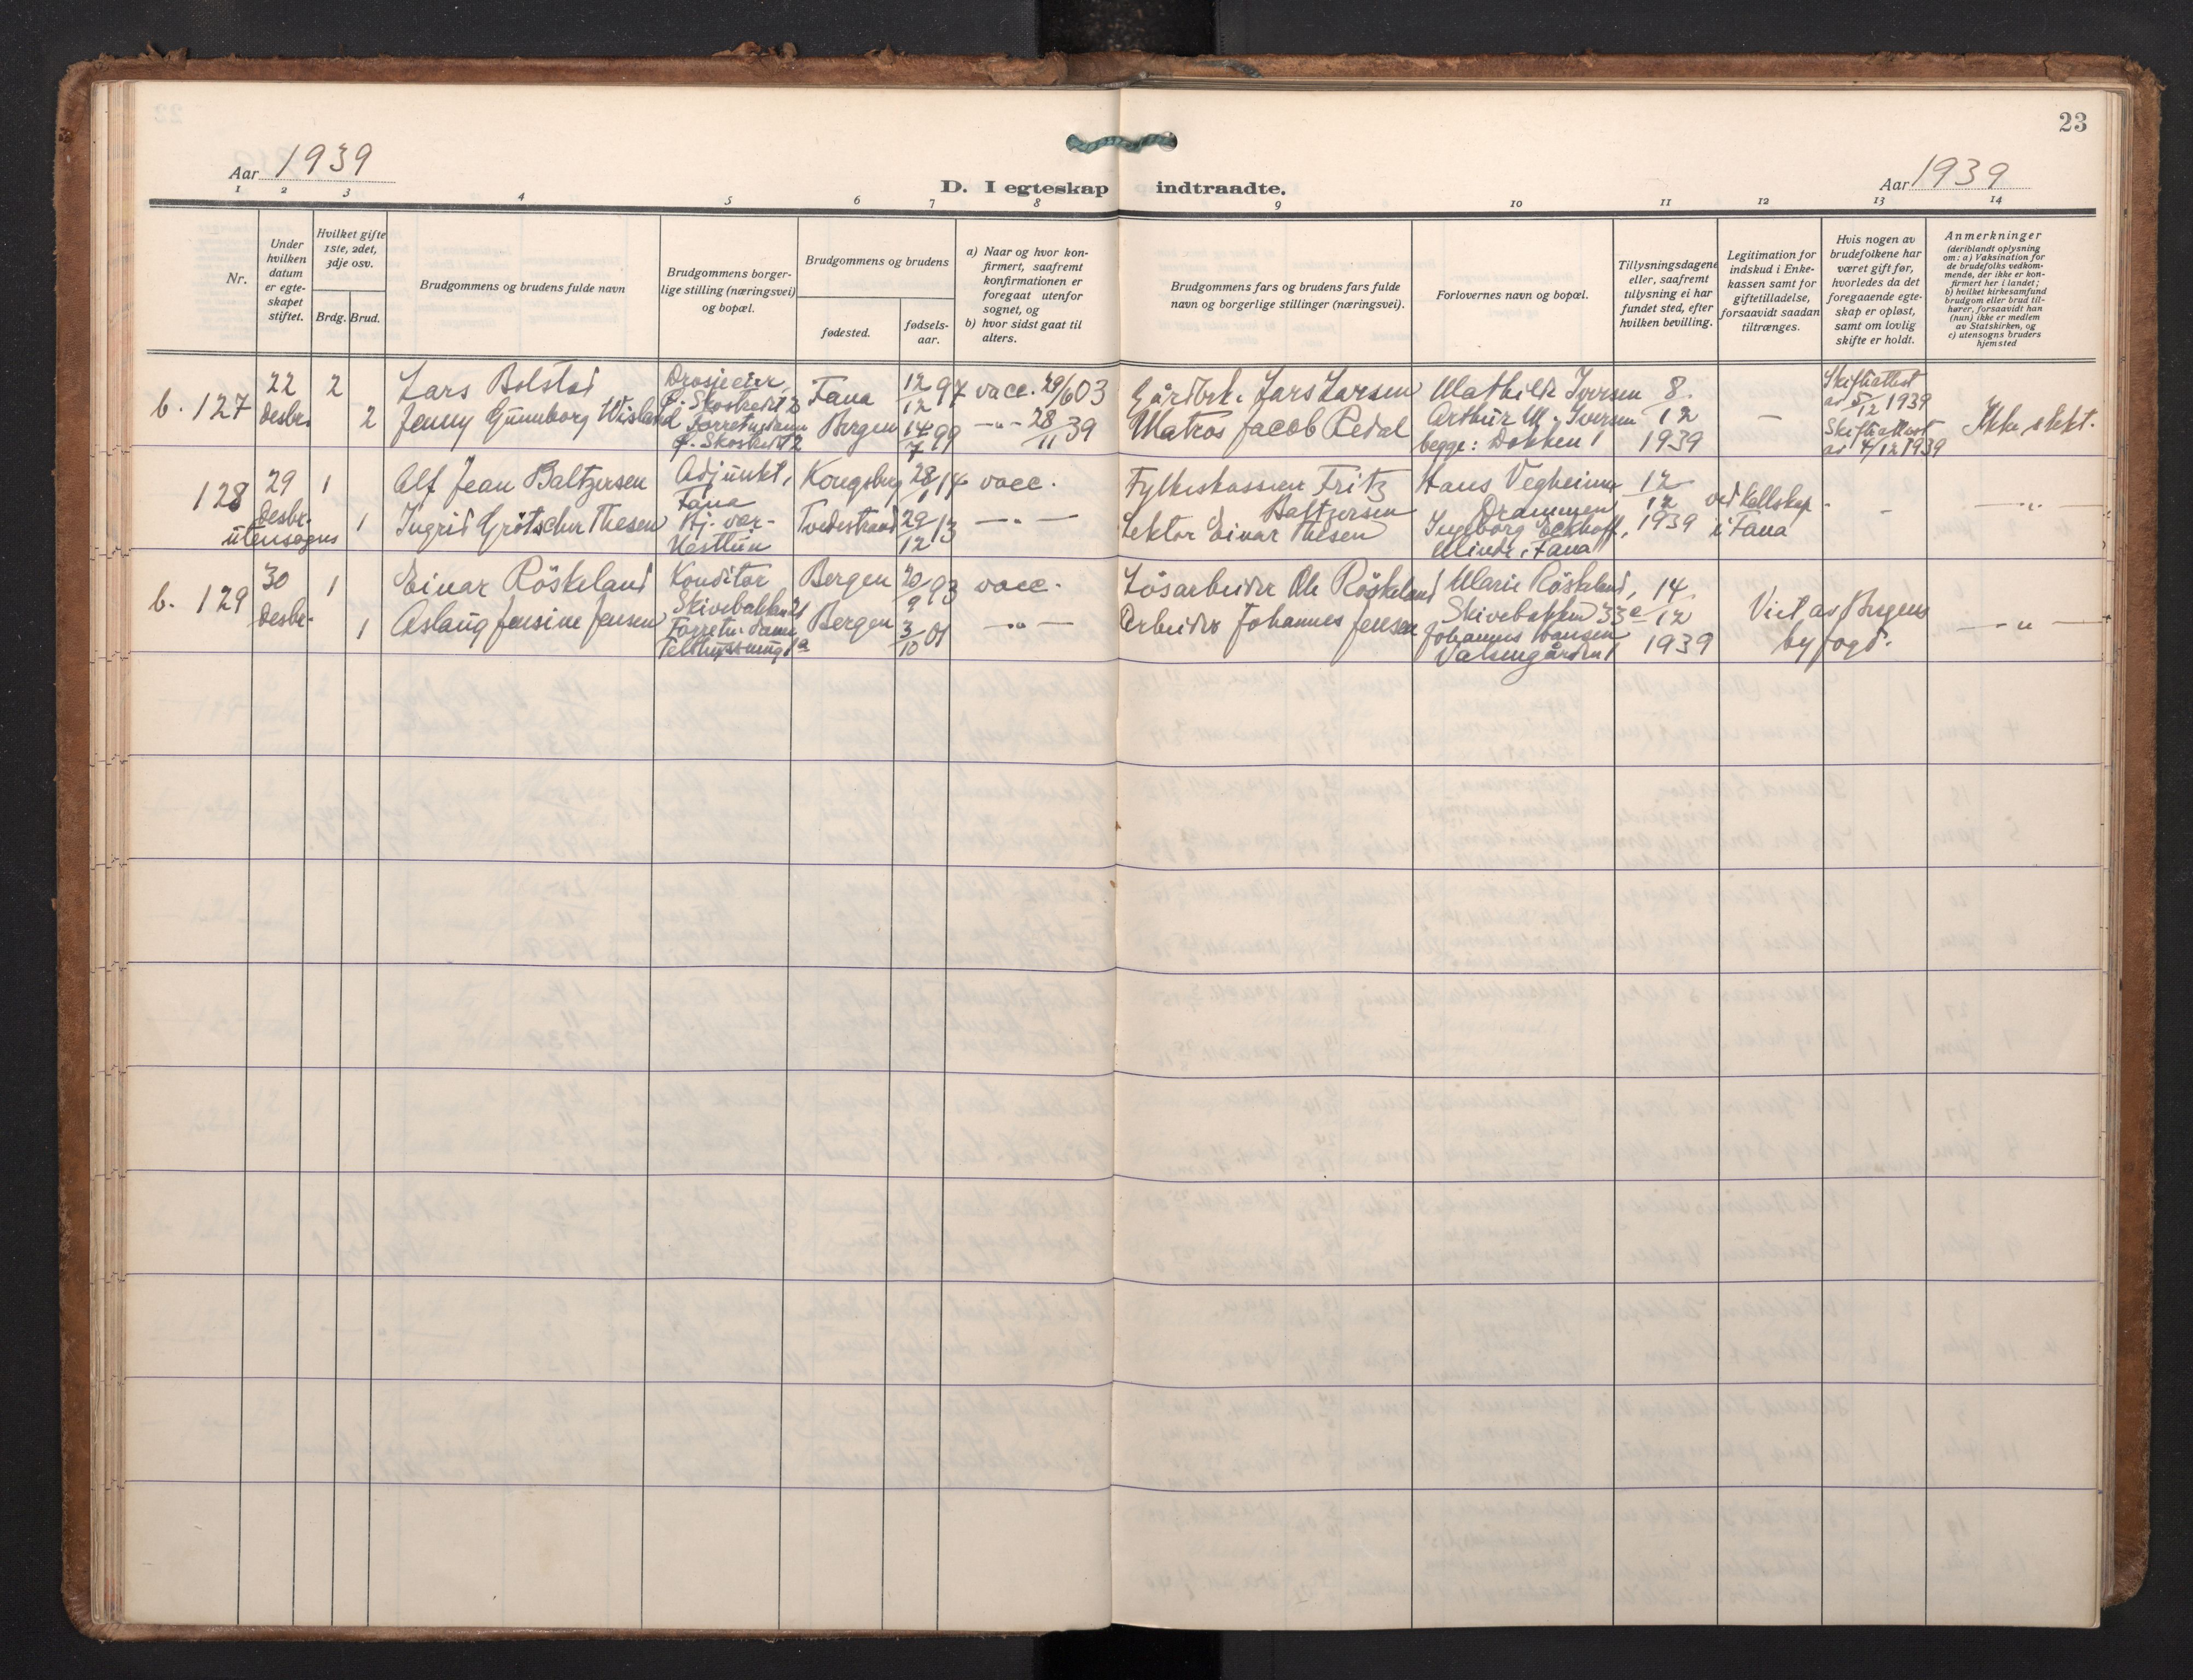 23
Aar 1939
D. I egteskap indtraadte.
Aar 1939
1 2 3 4 5 6 7 8 9 10 11 12 13 14
Nr.
Under hvilken datum er egteskapet stiftet.
Hvilket gifte 1ste, 2det, 3dje osv.
Brdg. Brud.
Brudgommens og brudens fulde navn
Brudgommens borgerlige stilling (næringsvei) og bopæl.
Brudgommens og brudens
fødested.
fødselsaar.
a) Naar og hvor konfirmert, saafremt konfirmationen er foregaat utenfor sognet, og
b) hvor sidst gaat til alters.
Brudgommens fars og brudens fars fulde navn og borgerlige stillinger (næringsvei).
Forlovernes navn og bopæl.
Tillysningsdagene eller, saafremt tillysning ei har fundet sted, efter hvilken bevilling.
Legitimation for indskud i Enkekassen samt for giftetilladelse, forsaavidt saadan tiltrænges.
Hvis nogen av brudefolkene har været gift før, hvorledes da det foregaaende egteskap er opløst, samt om lovlig skifte er holdt.
Anmerkninger
(deriblandt oplysning om: a) Vaksination for de brudefolks vedkommende, der ikke er konfirmert her i landet; b) hvilket kirkesamfund brudgom eller brud tilhører, forsaavidt han (hun) ikke er medlem av Statskirken, og c) utensogns bruders hjemsted
b. 127
22 desbr.
2
Lars Bolstad
Drosjeeier,
Ø. Skostredet 2
Fana
12/12 97
vacc. 29/6 03
Gårdbr. Lars Larsen
Mathilde Iversen
8.
Skifteattest
av 5/12 1939
2
Jenny Gunnborg Wisland
Forretn.dame
Ø. Skostredet 2
Bergen
14/7 99
-"- 28/11 39
Matros Jacob Redal
Arthur M. Iversen
begge: Dokken 1
12
1939
-
Skifteattest
av 4/12 1939
Ikke slekt.
128
29 desbr.
utensogns
1
Alf Jean Baltzersen
Adjunkt,
Fana
Kongsberg
28/1 14
vacc.
Fylkeskasserer Fritz
Baltzersen
Hans Vegheim
Drammen
12
12
1939
ved Kallskap
i Fana
-
-"-
1
Ingrid Grötscher Thesen
Hj. vær-
Nesttun
Tvedestrand
29/12 13
-"-
Lektor Einar Thesen
Ingeborg Eckhoff,
Minde, Fana
b. 129
30 desbr.
1
Einar Röskeland
Konditor
Skivebakken 21
Bergen
20/9 93
vacc.
Lösarbeider Ole Röskeland
Marie Röskeland,
Skivebakken 33
14
12
1939
Viet av Bergens
byfogd.
-"-
1
Aslaug Jensine Jensen
Forretn. dame
Bergen
3/10 01
-"-
Arbeider Johannes Jensen
Johannes Hansen